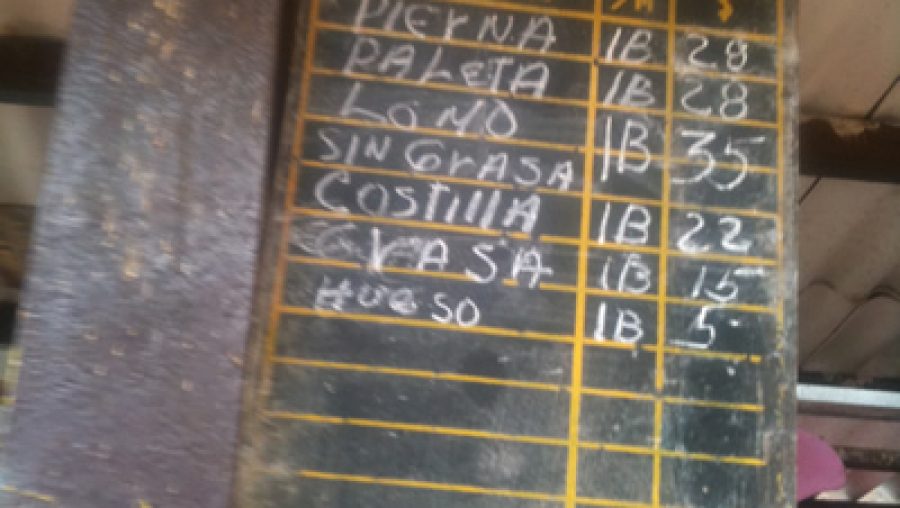 $
PIERNA 1B 28
PALETA 1B 28
LOMO
SIN GRASA 1B 35
COSTILLA 1B 22
GRASA 1B 15
HUESO 1B 5